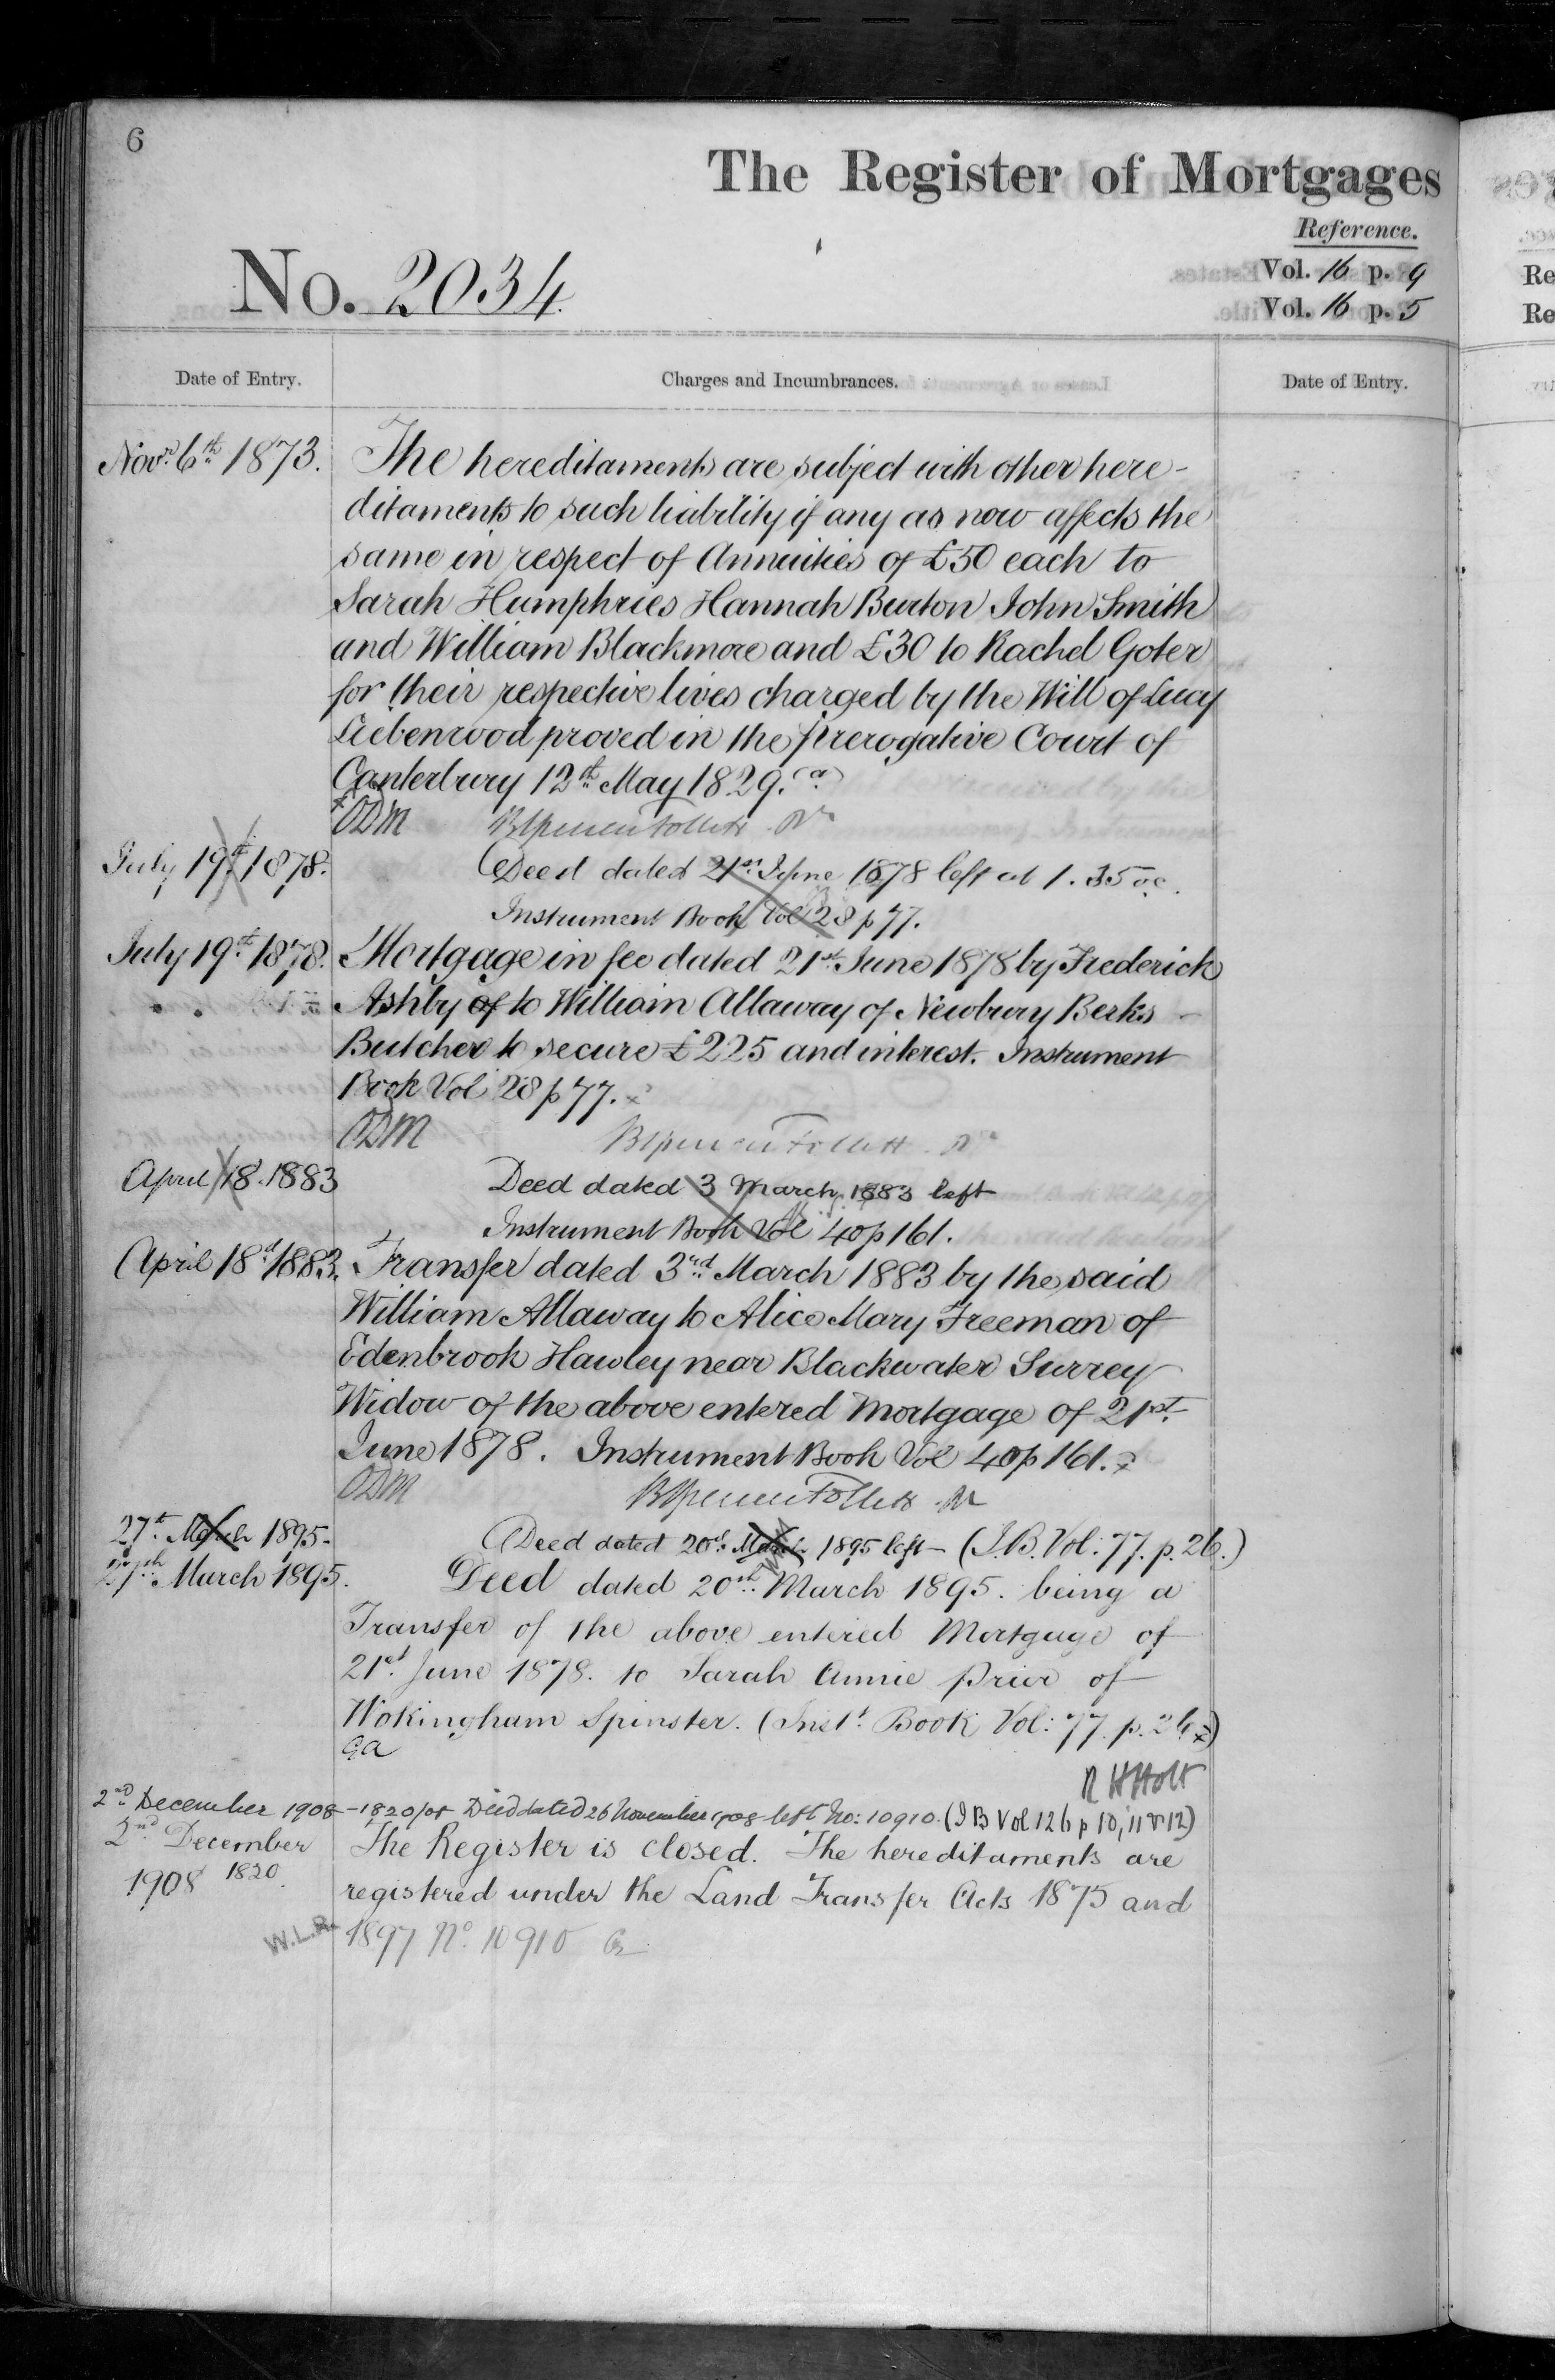 6
The Register of Mortgages
Reference.
No. 2034.
Vol. 16 p. 9
Vol. 16 p. 5
Date of Entry.
Charges and Incumbrances.
Date of Entry.
Novr. 6th 1873. The hereditaments are subject with other here-
ditaments to such liability if any as now affects the
same in respect of Annuities of £50 each to
Sarah Humphries Hannah Burton John Smith
and William Blackmore and £30 to Rachel Goter
for their respective lives charged by the Will of Lucy
proved in the Prerogative Court of
Canterbury 12th May 1829. (a)
ODM
July 19th 1878. Deed dated 21st June 1878 left at 1.35 oc.
Instrument Book Vol 28 p 77.
July 19th 1878. Mortgage in fee dated 21st June 1878 by Frederick
Ashby of to William Allaway of Newbury Berks
Butcher to secure £225 and interest. Instrument
Book Vol 28 p 77.
ODM
April 18. 1883 Deed dated 3 March 1883 left
Instrument Book Vol 40 p 161.
April 18th 1883. Transfer dated 3rd March 1883 by the said
William Allaway to Alice Mary Freeman of
Edenbrook Hawley near Blackwater Surrey
Widow of the above entered Mortgage of 21st
June 1878. Instrument Book Vol 40 p 161.
ODM
27th March 1895. Deed dated 20th March 1895 left - (I.B. Vol: 77. p. 26.)
27th March 1895. Deed dated 20th March 1895. being a
Transfer of the above entered Mortgage of
21st June 1878. to Sarah Annie Prior of
Wokingham Spinster. (Inst. Book Vol: 77 p. 26)
GA
R H Holt
2nd December 1908 - 1820/08 Deed dated 26 November 1908 left No: 10910. (I B Vol 126 p 10, 11 & 12)
2nd December The Register is closed. The hereditaments are
1908 1820. registered under the Land Transfer Acts 1875 and
W.L.R. 1897 No. 10910